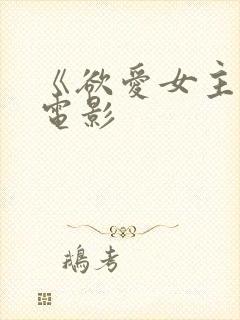 《欲愛女主
電影
鵝考